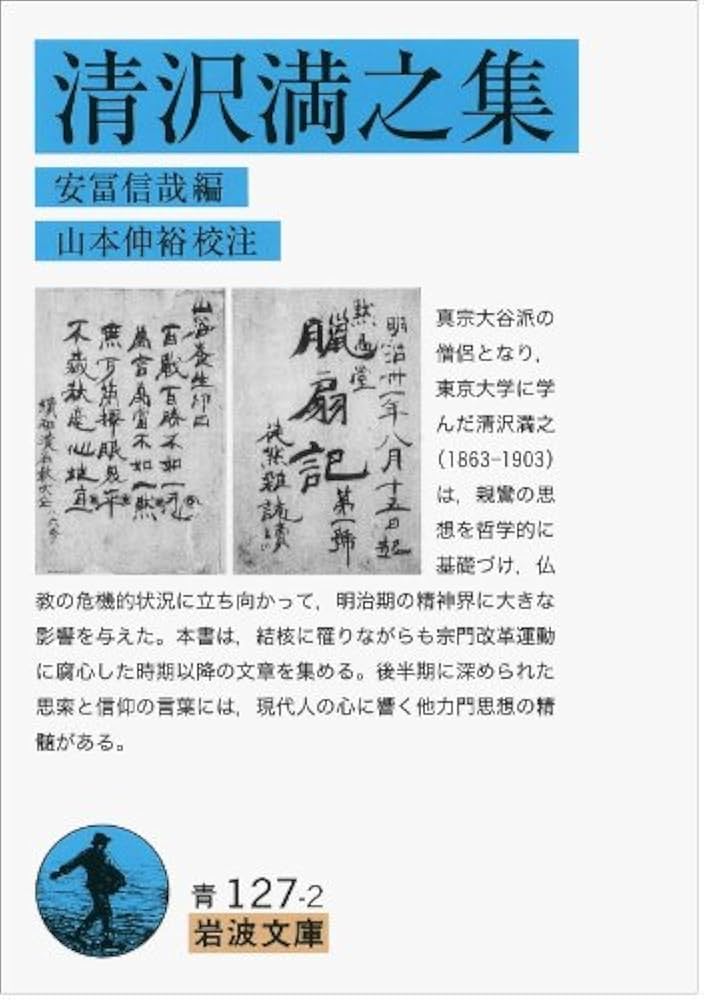 清沢満之集
安冨信哉編
山本伸裕校注
明治卅一年八月十五日起
黙爲堂
臘扇記
第一號
徒然雑誌
百戰百勝不如一忍
萬言萬當不如一黙
真宗大谷派の
僧侶となり，
東京大学に学
んだ清沢満之
(1863-1903)
は，親鸞の思
想を哲学的に
基礎づけ，仏
教の危機的状況に立ち向かって，明治期の精神界に大きな
影響を与えた。本書は，結核に罹りながらも宗門改革運動
に腐心した時期以降の文章を集める。後半期に深められた
思索と信仰の言葉には，現代人の心に響く他力門思想の精
髄がある。
青 127-2
岩波文庫